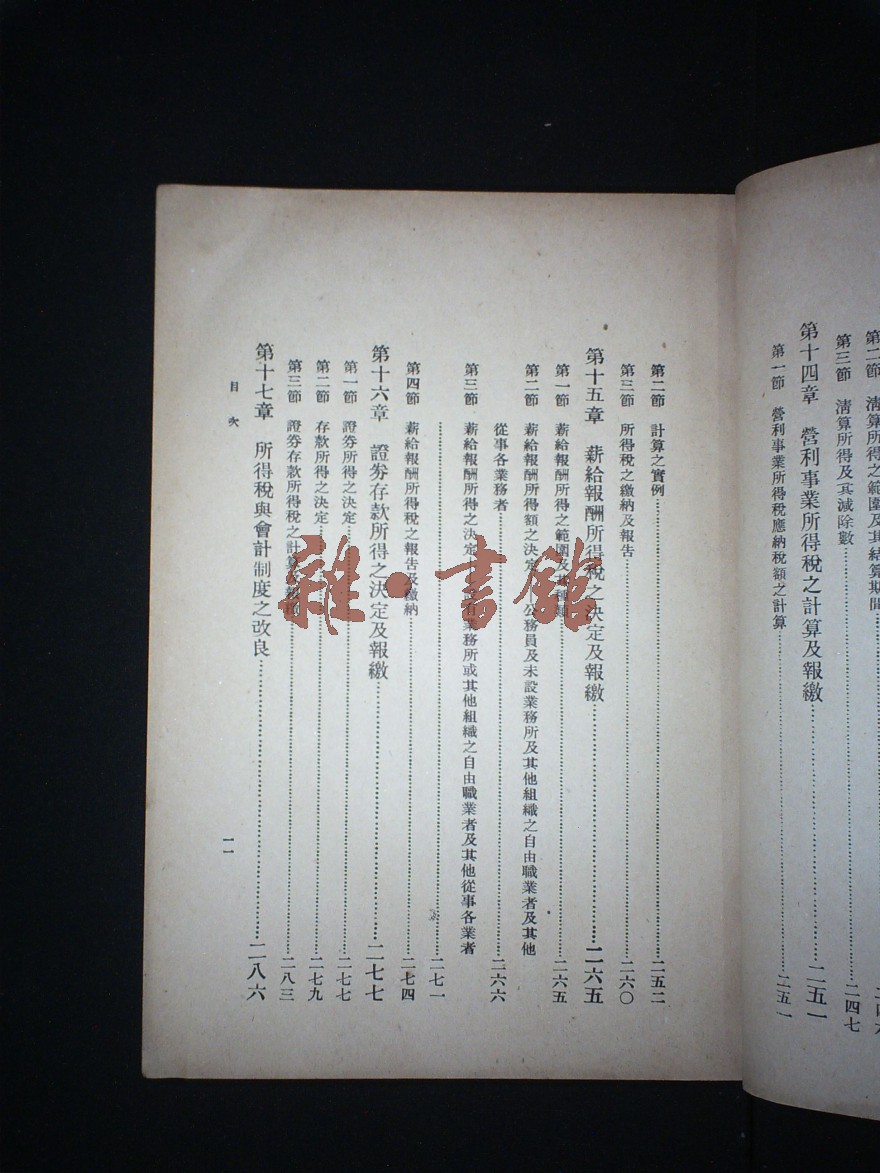 第二節 清算所得之範圍及其結算期間
第三節 清算所得及其減除數……二四七
第十四章 營利事業所得稅之計算及報繳……二五一
第一節 營利事業所得稅應納稅額之計算……二五一
第二節 計算之實例……二五二
第三節 所得稅之繳納及報告……二六〇
第十五章 薪給報酬所得稅之決定及報繳……二六五
第一節 薪給報酬所得之範圍及其種類……二六五
第二節 薪給報酬所得額之決定 公務員及未設業務所及其他組織之自由職業者及其他
從事各業務者……二六六
第三節 薪給報酬所得之決定 設有業務所或其他組織之自由職業者及其他從事各業者
……二七一
第四節 薪給報酬所得稅之報告及繳納……二七四
第十六章 證券存款所得之決定及報繳……二七七
第一節 證券所得之決定……二七七
第二節 存款所得之決定……二七九
第三節 證券存款所得稅之計算及報繳……二八三
第十七章 所得稅與會計制度之改良……二八六
目次
一一
雜·書館